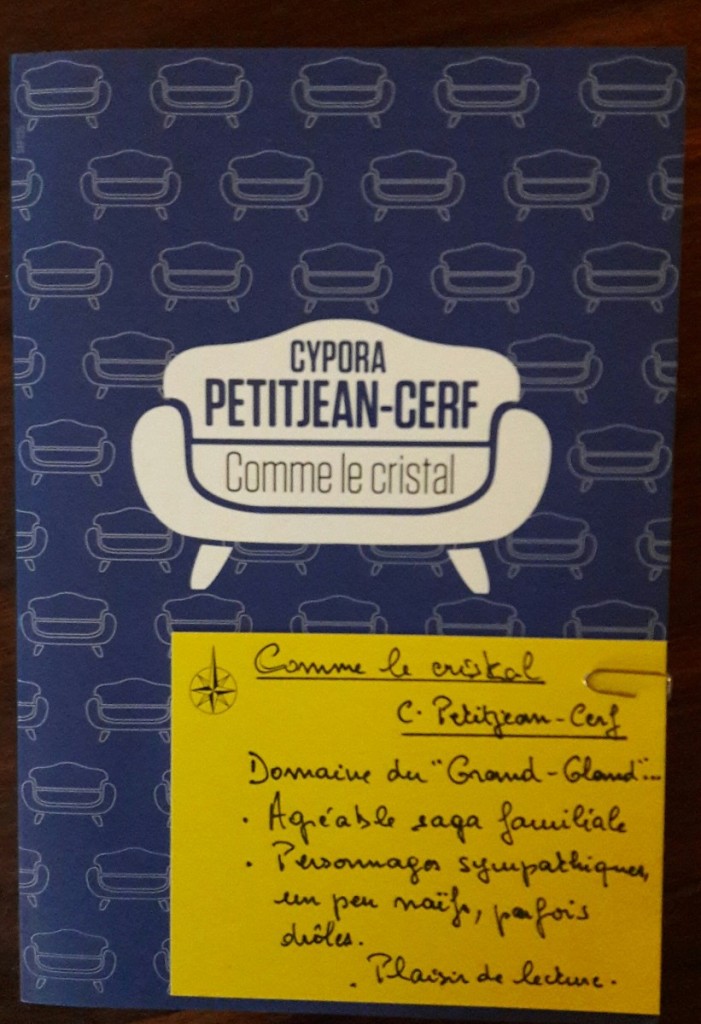 CYPORA
PETITJEAN-CERF
Comme le cristal
Comme le cristal
C. Petitjean-Cerf
Domaine du "Grand-Gland"...
. Agréable saga familiale
. Personnages sympathiques,
un peu naïfs, parfois
drôles.
. Plaisir de lecture.